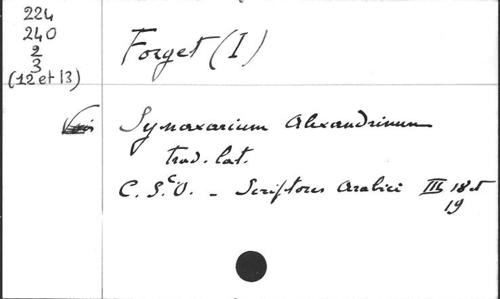 224
240
2
3
(12 et 13)
Forget (I)
Synaxarium Alexandrinum
trad. lat.
C. S. C. O. - Scriptores Arabici III 18 et
19